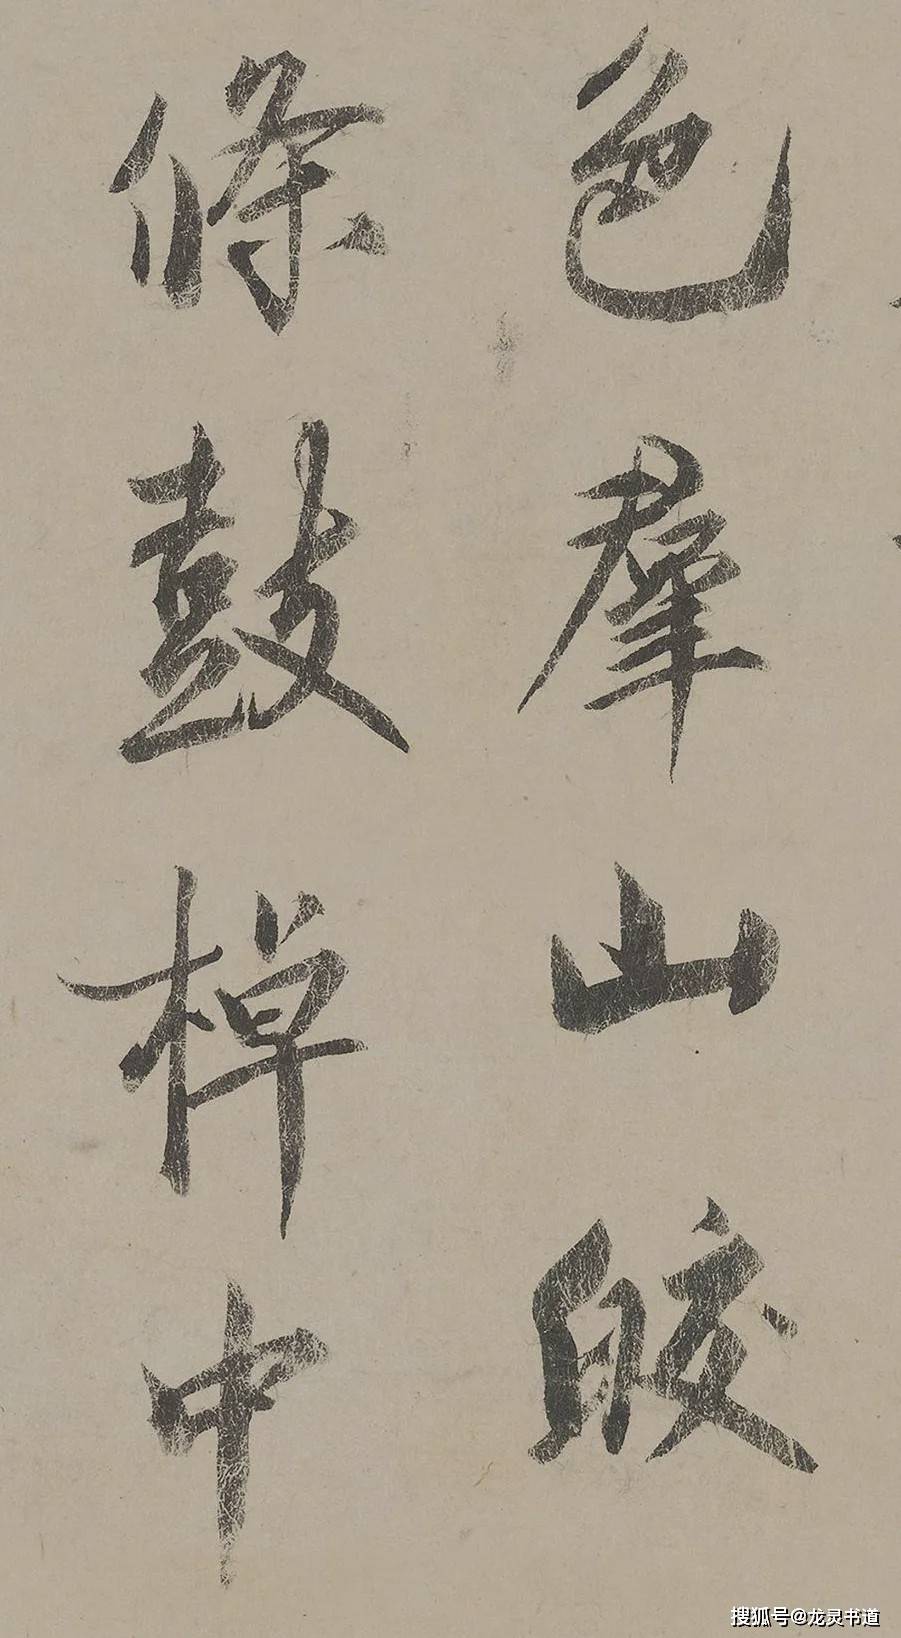 色羣山皎
條鼓棹中
搜狐号@龙灵书道